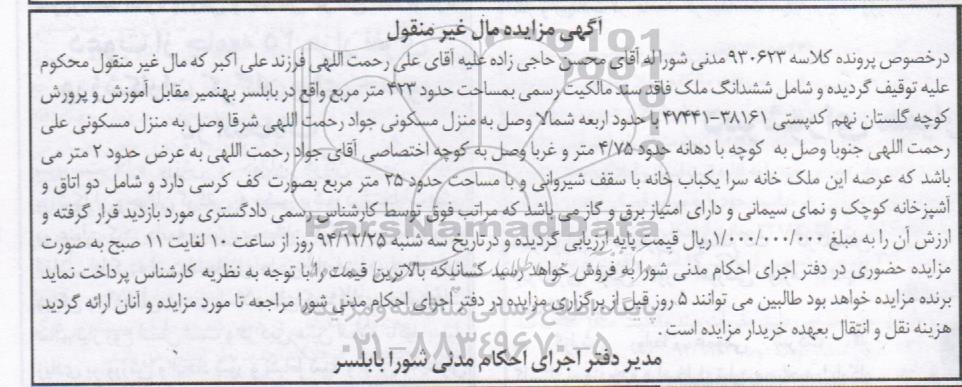 آگهی مزایده مال غیر منقول
درخصوص پرونده کلاسه ۹۳۰۶۲۳ مدنی شورا له آقای محسن حاجی زاده علیه آقای علی رحمت اللهی فرزند علی اکبر که مال غیر منقول محکوم
علیه توقیف گردیده و شامل ششدانگ ملک فاقد سند مالکیت رسمی بمساحت حدود ۴۲۳ متر مربع واقع در بابلسر بهنمیر مقابل آموزش و پرورش
کوچه گلستان نهم کدپستی ۳۸۱۶۱-۴۷۴۴۱ با حدود اربعه شمالا وصل به منزل مسکونی جواد رحمت اللهی شرقا وصل به منزل مسکونی علی
رحمت اللهی جنوبا وصل به کوچه با دهانه حدود ۴/۷۵ متر و غربا وصل به کوچه اختصاصی آقای جواد رحمت اللهی به عرض حدود ۲ متر می
باشد که عرصه این ملک خانه سرا یکباب خانه با سقف شیروانی و با مساحت حدود ۲۵ متر مربع بصورت کف کرسی دارد و شامل دو اتاق و
آشپزخانه کوچک و نمای سیمانی و دارای امتیاز برق و گاز می باشد که مراتب فوق توسط کارشناس رسمی دادگستری مورد بازدید قرار گرفته و
ارزش آن را به مبلغ ۱/۰۰۰/۰۰۰/۰۰۰ریال قیمت پایه ارزیابی گردیده و درتاریخ سه شنبه ۹۴/۱۲/۲۵ روز از ساعت ۱۰ لغایت ۱۱ صبح به صورت
مزایده حضوری در دفتر اجرای احکام مدنی شورا به فروش خواهد رسید کسانیکه بالاترین قیمت را با توجه به نظریه کارشناس پرداخت نماید
برنده مزایده خواهد بود طالبین می توانند ۵ روز قبل از برگزاری مزایده در دفتر اجرای احکام مدنی شورا مراجعه تا مورد مزایده و آنان ارائه گردید
هزینه نقل و انتقال بعهده خریدار مزایده است.
مدیر دفتر اجرای احکام مدنی شورا بابلسر
ParsNamadData
پایگاه اطلاع رسانی مناقصه و مزایده
۰۲۱-۸۸۳۴۹۶۷۰-۵